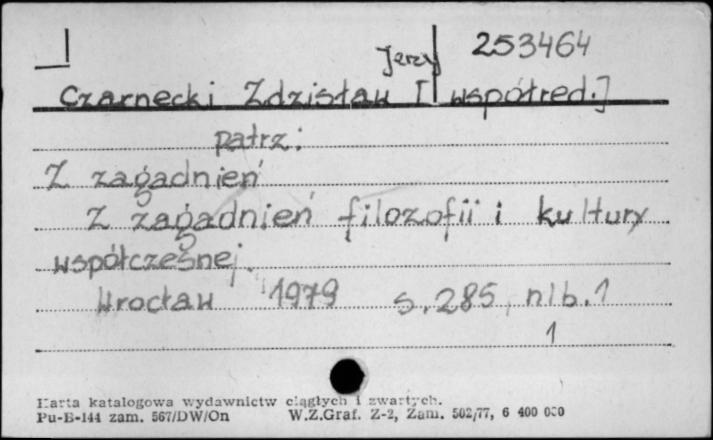 Jerzy 253464
Czarnecki Zdzisław [współred.]
patrz:
Z zagadnień
Z zagadnień filozofii i kultury
współczesnej.
Wrocław 1979 s. 285, nlb. 1
1
Karta katalogowa wydawnictw ciągłych i zwartych.
Pu-B-144 zam. 567/DW/On W.Z.Graf. Z-2, Zam. 502/77, 6 400 000